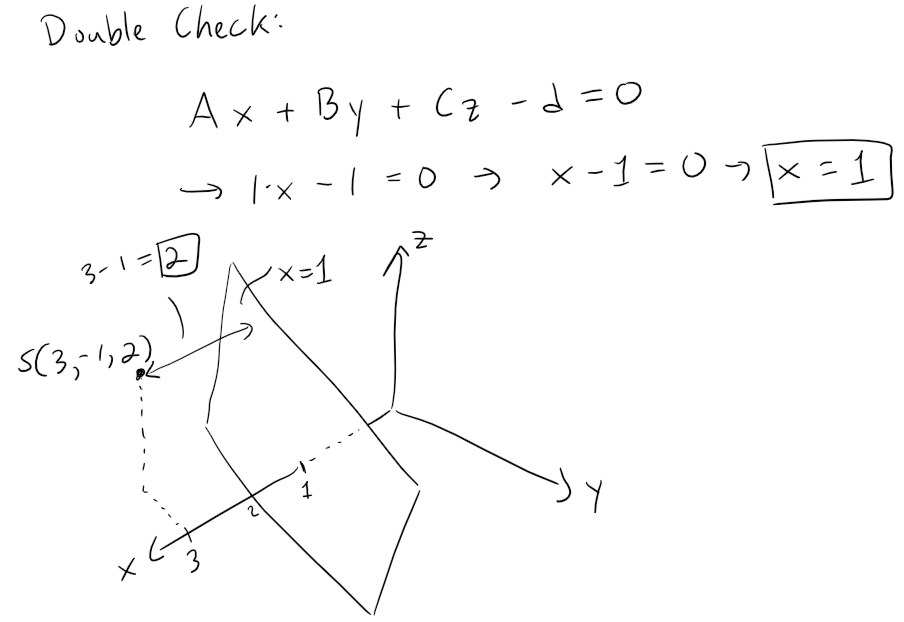 Double Check:
Ax + By + Cz - d = 0
→ 1·x - 1 = 0 → x - 1 = 0 → x = 1
3 - 1 = 2
x = 1
z
S(3, -1, 2)
1
2
3
x
y